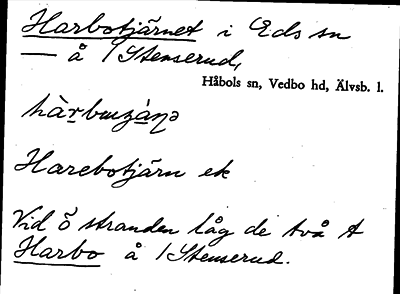 Harbotjärnet i Eds sn
— å 1 Stenserud,
Håbols sn, Vedbo hd, Älvsb. l.
Harebotjärn ek
Vid ö stranden låg de två t
Harbo å 1 Stenserud.